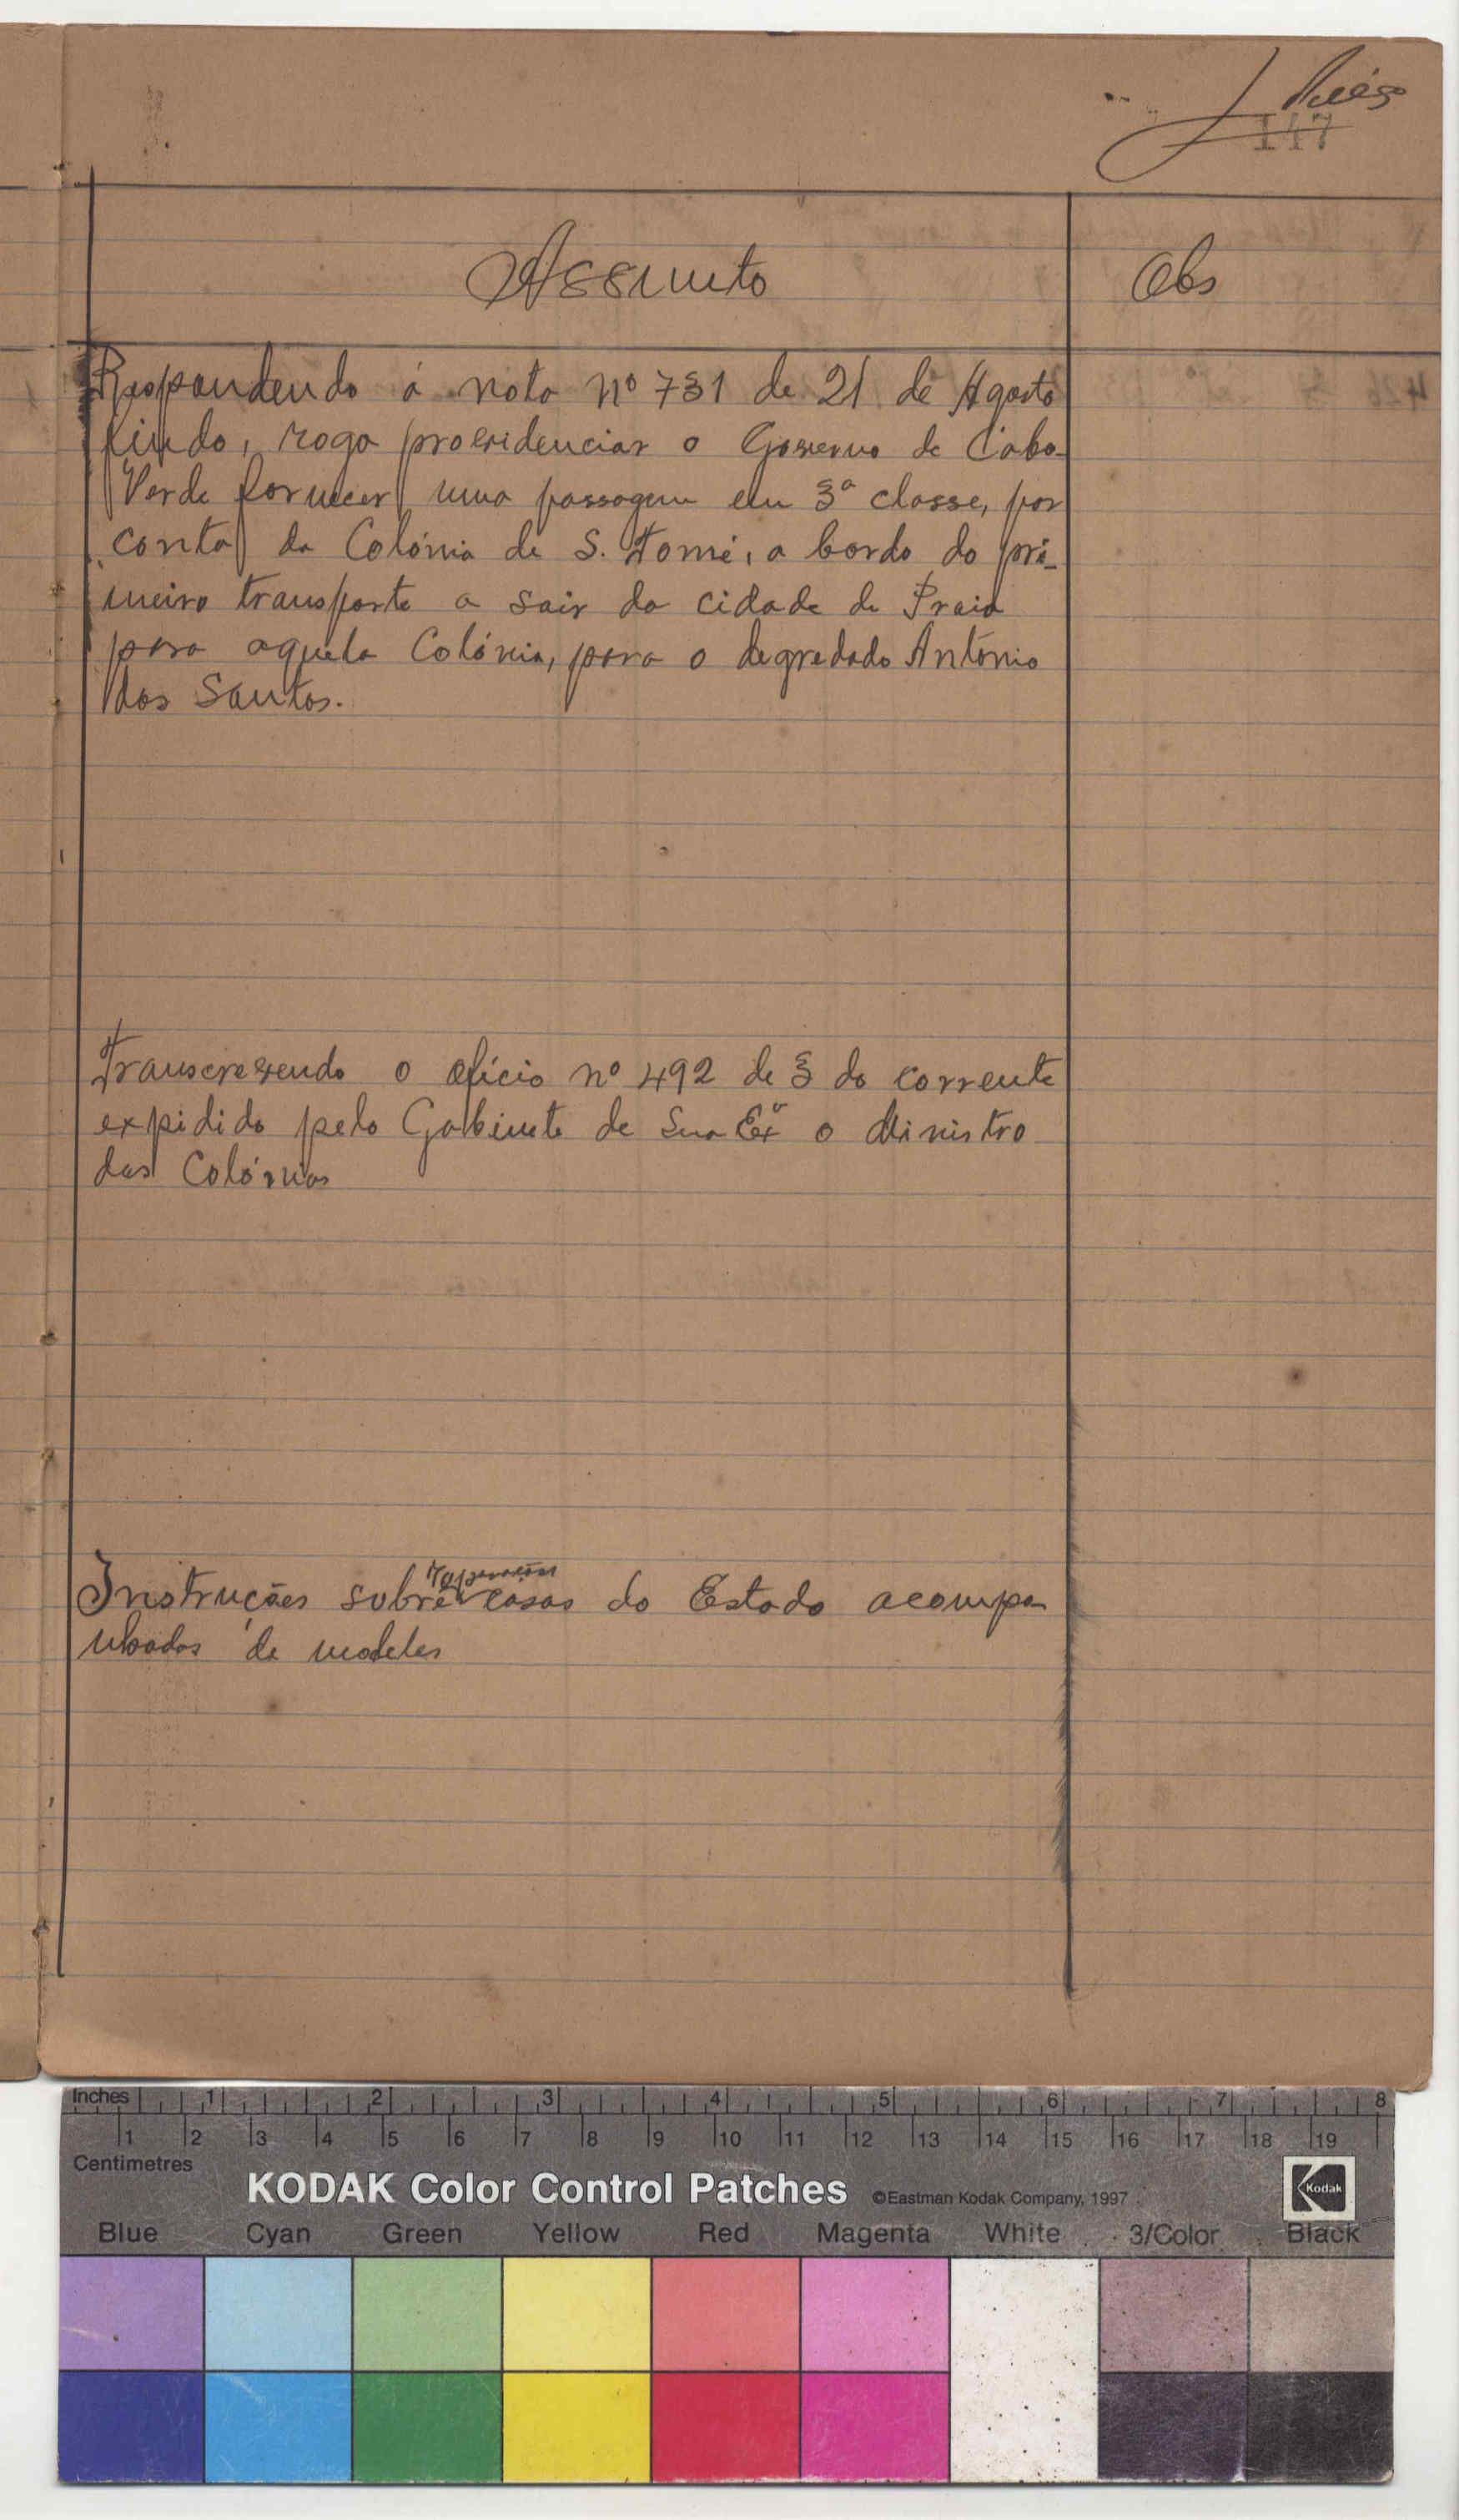 147
Assunto
Obs
Respondendo á nota nº 731 de 21 de Agosto
findo, rogo providenciar o Governo de Cabo-
Verde fornecer uma passagem em 3ª classe, por
conta da Colónia de S. Tomé, a bordo do pri-
meiro transporte a sair da cidade da Praia
para aquela Colónia, para o degredado António
dos Santos.
Transcrevendo o ofício nº 492 de 3 do corrente
expedido pelo Gabinete de Sua Exª o Ministro
das Colónias
reparações
Instruções sobre casas do Estado acompa-
nhadas de modelos
Inches 1 2 3 4 5 6 7 8
1 2 3 4 5 6 7 8 9 10 11 12 13 14 15 16 17 18 19
Centimetres
KODAK Color Control Patches ©Eastman Kodak Company, 1997 Kodak
Blue Cyan Green Yellow Red Magenta White 3/Color Black